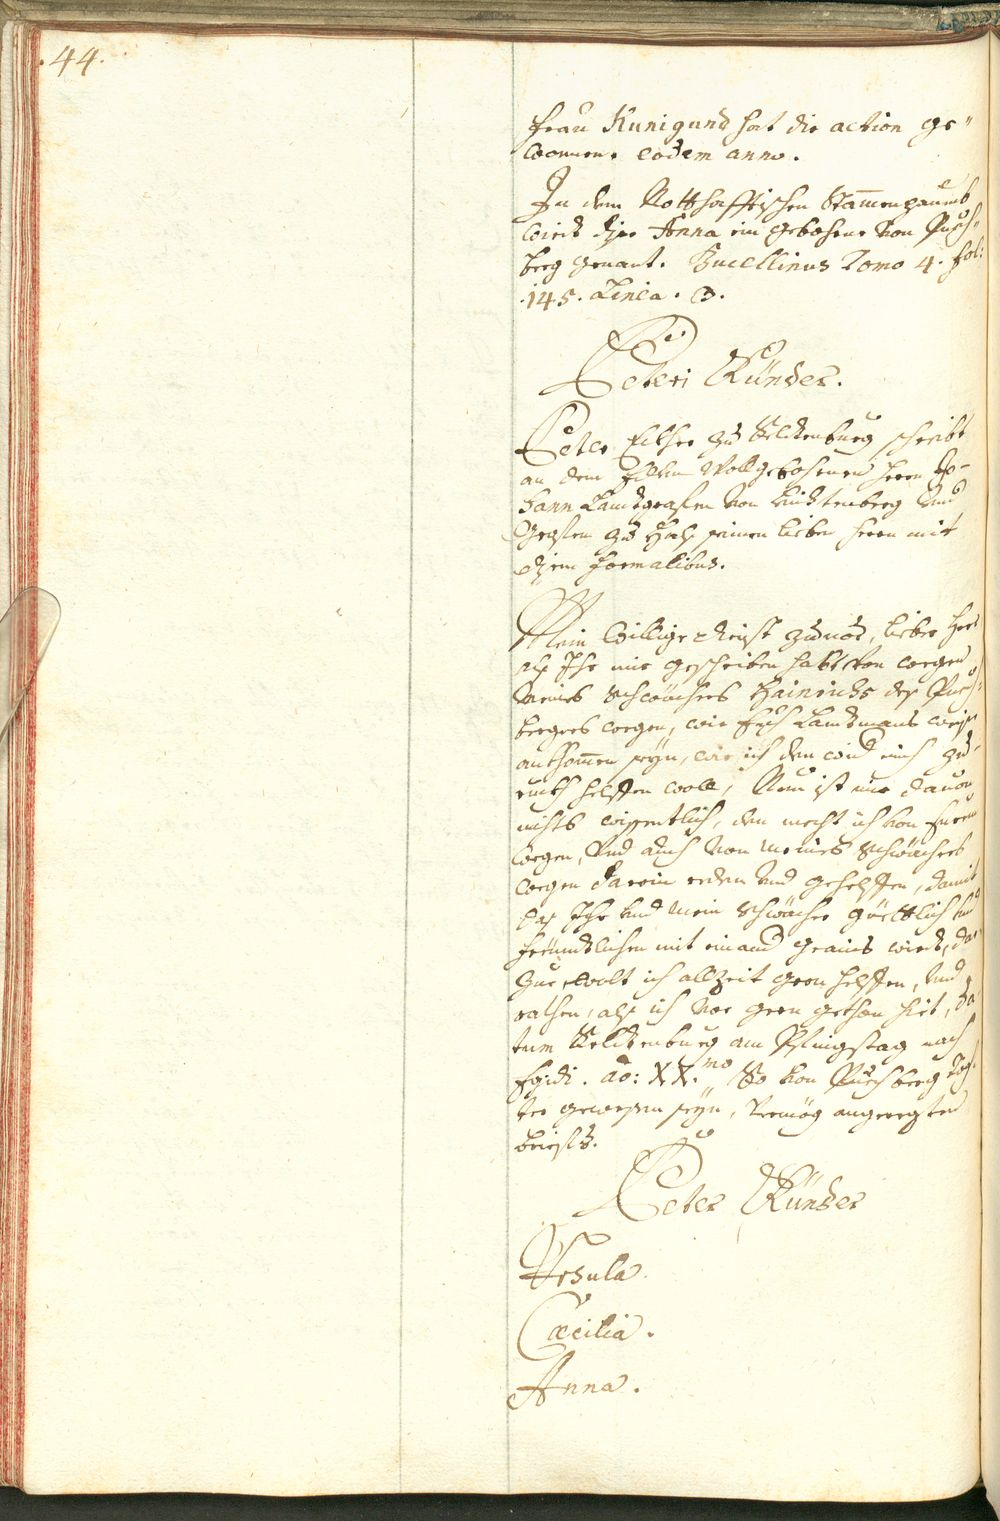 .44.
frau Kunigund hat die action ge„
wonnen. eodem anno.
In dem Notthafftischen Stammenpaumb
wird dise Anna ein gebohrne von Puch„
berg genant. Bucellinus Tomo 4. fol:
.145. Linea. 3.
Peteri Künder.
Peter Ecker zu Seldenburg schreibt
an dem Edlen Wollgebohrnen herrn Jo-
hann Landtgrafen von Leichtenberg Und
Grafen zu Hals seinen lieben herrn mit
disen formalibus.
Mein Willige dienst zuuor, lieber herr
als Ihr mir geschriben habt von wegen
Meines Schwächers Hainrichs des Puch„
bergers wegen, wie Euch Landtmans weis
ankhommen seyn, wie ich den und euch zu-
ruckh helffen woll, Nun ist mir dauon
nichts wissentlich, den mecht ich von Euren
wegen, Und auch von meines Schwächers
wegen darein reden Und gehelffen, damit
das Ihr und mein Schwächer güettlich Und
freundtlichen mit einand geains wird, da„
zue wolt ich allzeit gern helffen, Und
rathen, als ich vor gern gethan hiet, Da„
tum Seldenburg am Pfingstag nach
Egidi. ao: XX.mo So von Puchberg Toch„
ter gewesen seyn, Vermög angeregten
briefs.
Peter Künder
Ursula.
Cæcilia.
Anna.